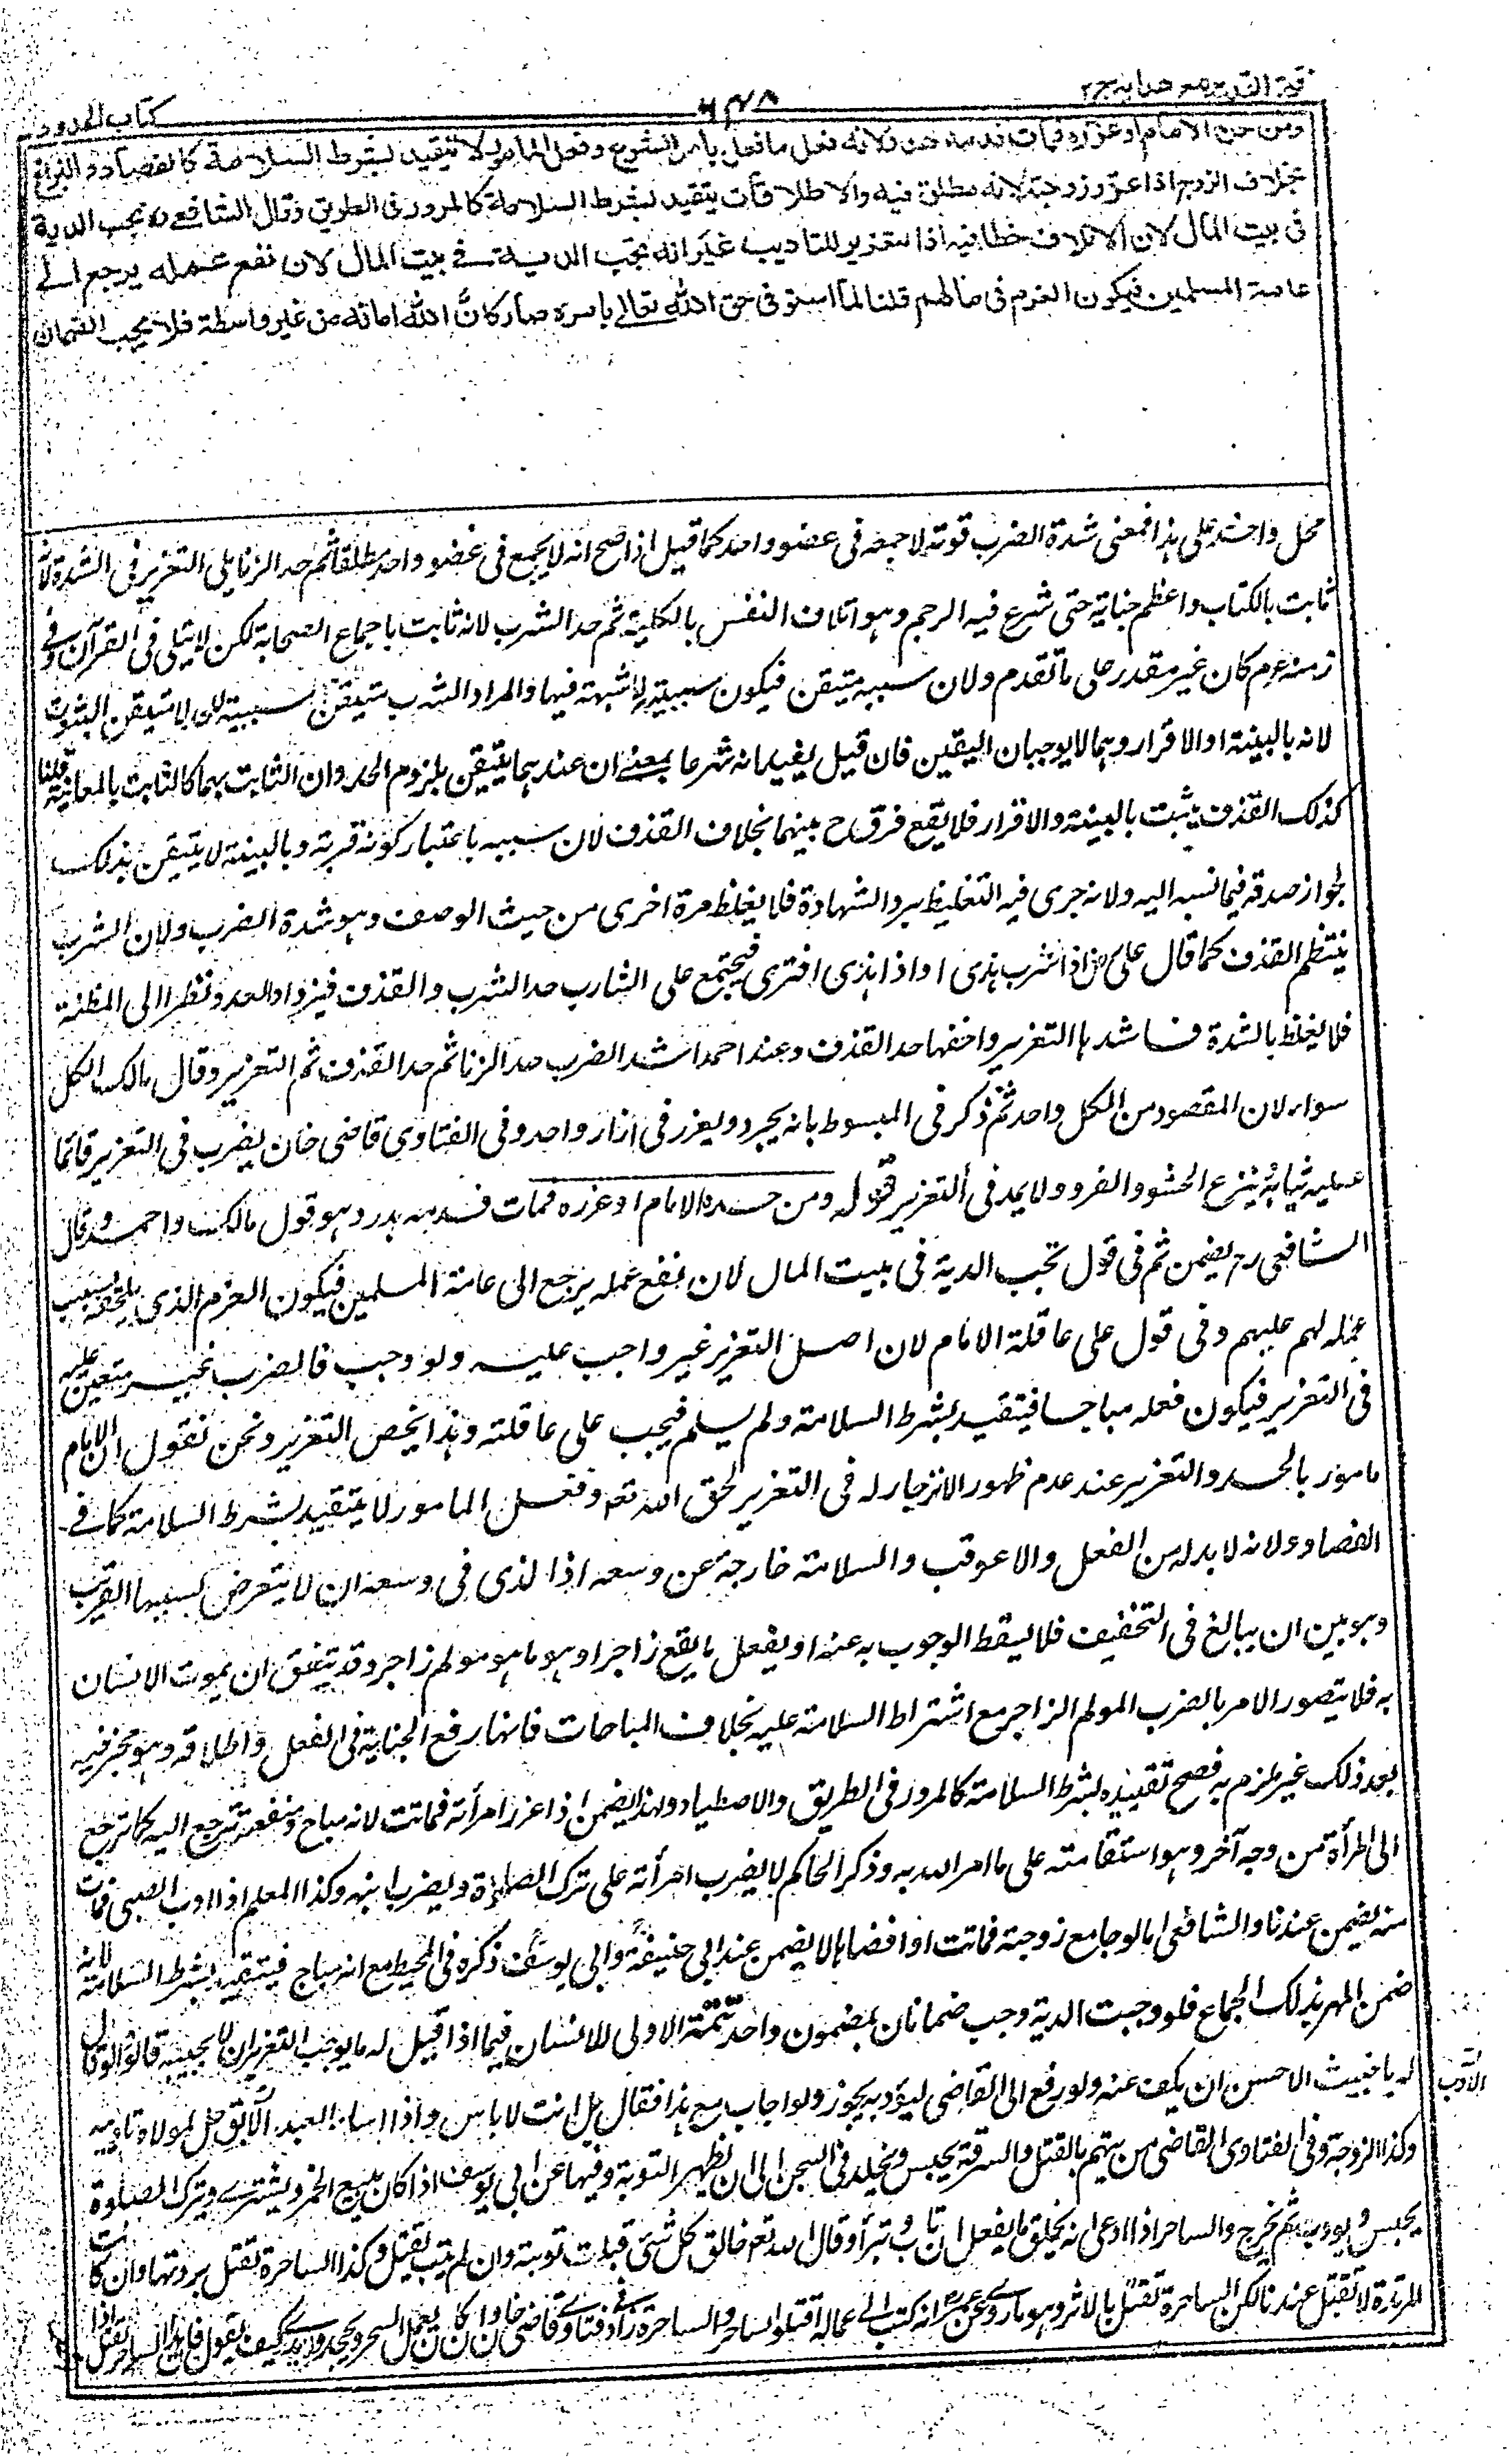 فتح القدير مع هدايه ج ٢
٦٣٨
كتاب الحدود
ومن حده الامام او عزره فمات فدمه هدر لانه فعل ما فعل بامر الشرع وفعل المامور لا يتقيد بشرط السلامة كالفصاد والبزاغ
بخلاف الزوج اذا عزر زوجته لانه مطلق فيه والاطلاقات يتقيد بشرط السلامة كالمرور في الطريق وقال الشافعي رح تجب الدية
في بيت المال لان الاتلاف خطا فيه اذا التعزير للتاديب غير انه تجب الدية في بيت المال لان نفع عمله يرجع الى
عامة المسلمين فيكون الغرم في مالهم قلنا لما استوفى حق الله تعالى بامره صار كان الله اماته من غير واسطة فلا يجب الضمان
محل واحد فعلى هذا فمعنى شدة الضرب قوته لا جمعه في عضو واحد كما قيل اذا صح انه لا يجمع في عضو واحد مطلقا ثم حد الزنا يلي التعزير في الشدة لانه
ثابت بالكتاب واعظم جناية حتى شرع فيه الرجم وهو اتلاف النفس بالكلية ثم حد الشرب لانه ثابت باجماع الصحابة لكن لا يتلى في القرآن وفي
زمنه عوم كان غير مقدر على ما تقدم ولان سببه متيقن فيكون سببيته لا شبهة فيها والمراد الشرب متيقن سببيته لان لا متيقن الثبوت
لانه بالبينة او الاقرار وهما لا يوجبان اليقين فان قيل يفيدانه شرعا بمعنى ان عندهما يتيقن بلزوم الحد وان الثابت بهما كالثابت بالمعاينة قلنا
كذلك القذف يثبت بالبينة والاقرار فلا يقع فرق ح بينهما بخلاف القذف لان سببه باعتبار كونه فرية وبالبينة لا يتيقن بذلك
لجواز صدقه فيما نسبه اليه ولانه جرى فيه التغليظ برد الشهادة فلا يغلظ مرة اخرى من حيث الوصف وهو شدة الضرب ولان الشرب
ينتظم القذف كما قال علي رض اذا شرب هذى واذا هذى افترى فيجتمع على الشارب حد الشرب والقذف فيزداد العدد نظرا الى المظنة
فلا يغلظ بالشدة فاشدها التعزير واخفها حد القذف وعند احمد اشد الضرب حد الزنا ثم حد القذف ثم التعزير وقال مالك الكل
سواء لان المقصود من الكل واحد ثم ذكر في المبسوط بانه يجرد ويعزر في ازار واحد وفي الفتاوى قاضي خان يضرب في التعزير قائما
عليه ثيابه ينزع الحشو والفرو ولا يمد في التعزير قوله ومن حده الامام او عزره فمات فدمه هدر وهو قول مالك واحمد وقال
الشافعي رح يضمن ثم في قول تجب الدية في بيت المال لان نفع عمله يرجع الى عامة المسلمين فيكون الغرم الذي يلحقه بسبب
عمله لهم عليهم وفي قول على عاقلة الامام لان اصل التعزير غير واجب عليه ولو وجب فالضرب غير متعين عليه
في التعزير فيكون فعله مباحا فيتقيد بشرط السلامة ولم يسلم فيجب على عاقلته وهذا يخص التعزير ونحن نقول ان الامام
مامور بالحد والتعزير عند عدم ظهور الانزجار له في التعزير لحق الله تعه وفعل المامور لا يتقيد بشرط السلامة كما في
الفصاد ولانه لا بد له من الفعل والا عوقب والسلامة خارجة عن وسعه اذا الذي في وسعه ان لا يتعرض لسببها القريب
وهو بين ان يبالغ في التخفيف فلا يسقط الوجوب به عنه او يفعل ما يقع زاجرا وهو ما هو مولم زاجر وقد يتفق ان يموت الانسان
به فلا يتصور الامر بالضرب المولم الزاجر مع اشتراط السلامة عليه بخلاف المباحات فانها رفع الجناية في الفعل واطلاقه وهو مخير فيه
بعد ذلك غير ملزم به فصح تقييده بشرط السلامة كالمرور في الطريق والاصطياد ولهذا يضمن اذا عزر امرأته فماتت لانه مباح ومنفعته ترجع اليه كما ترجع
الى المرأة من وجه آخر وهو استقامته على ما امر الله به وذكر الحاكم لا يضرب امرأته على ترك الصلاة ويضرب ابنه وكذا المعلم اذا ادب الصبي فمات
منه يضمن عندنا والشافعي اما لو جامع زوجته فماتت او افضاها لا يضمن عند ابي حنيفة وابي يوسف ذكره في المحيط مع انه مباح فيتقيد بشرط السلامة لانه
ضمن المهر بذلك الجماع فلو وجبت الدية وجب ضمانان بمضمون واحد تتمة الاولى للانسان فيما اذا قيل له ما يوجب التعزير ان لا يجيبه قالوا لو قال
له يا خبيث الاحسن ان يكف عنه ولو رفع الى القاضي ليؤدبه يجوز ولو اجاب مع هذا فقال بل انت لا باس واذا اساء العبد الادب حل لمولاه تاديبه
الآدب
وكذا الزوجة وفي الفتاوى القاضي من يتهم بالقتل والسرقة يحبس ويخلد في السجن الى ان يظهر التوبة وفيها عن ابي يوسف اذا كان يبيع الخمر ويشترى ويترك الصلوة
يحبس ويودب ثم يخرج والساحر اذا ادعى انه يخلق ما يفعل ان تاب وتبرأ وقال الله تعه خالق كل شئ قبلت توبته وان لم يتب يقتل وكذا الساحرة تقتل بردتها وان كانت
المرتدة لا تقتل عندنا لكن الساحرة تقتل بالاثر وهو ما روي عن عمر رض انه كتب الى عماله اقتلوا الساحر والساحرة زاد في فتاوى قاضي خان وان كان يعمل السحر ويجحد ولا يدرى كيف يقول فان هذا الساحر يقتل اذا